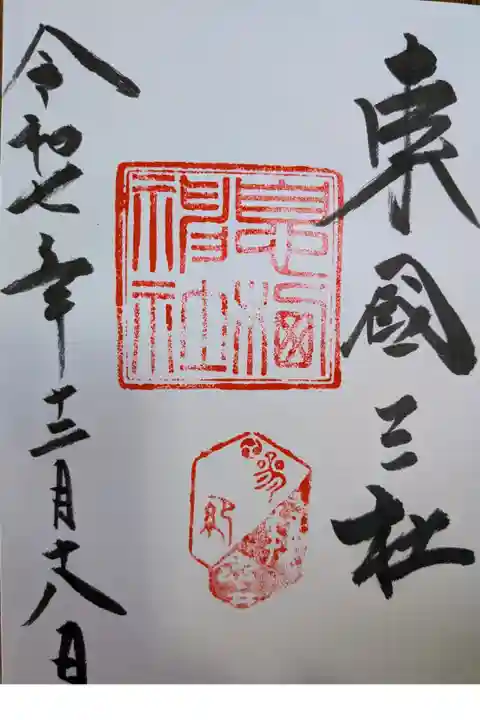 東國三社
息栖神社
令和七年十二月十八日